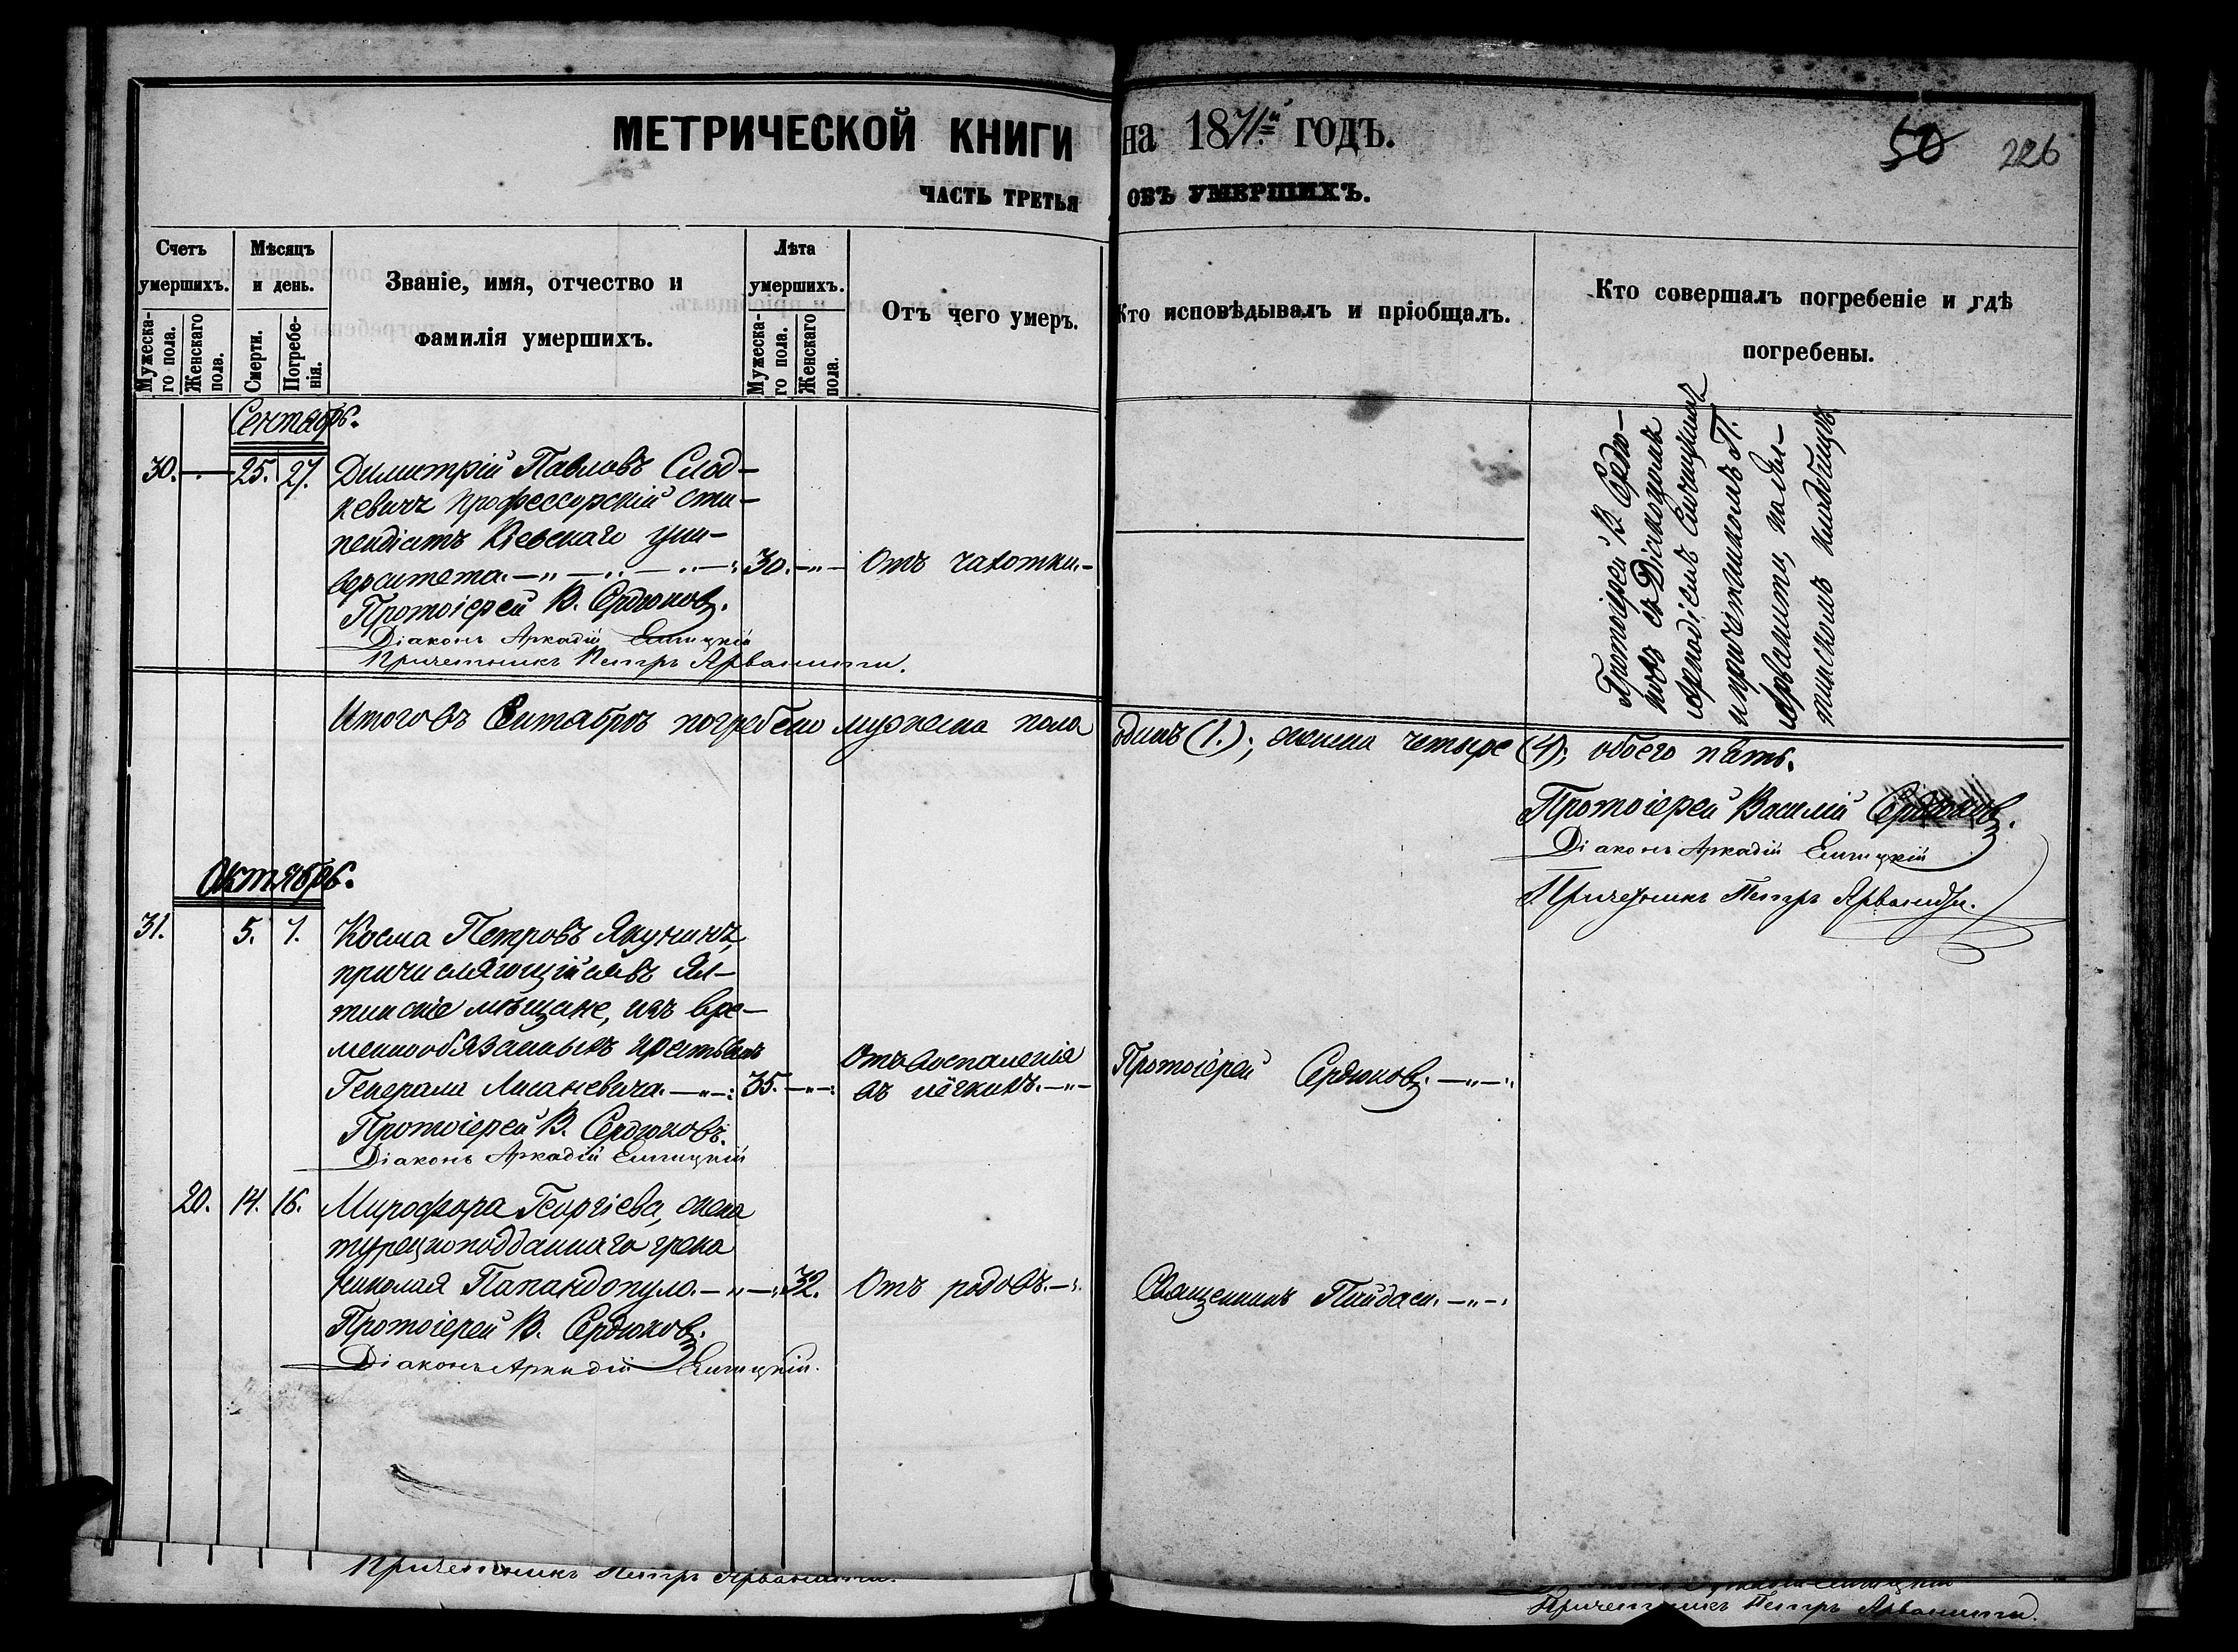 МЕТРИЧЕСКОЙ КНИГИ на 1871й годъ.
50 226
ЧАСТЬ ТРЕТЬЯ ОБЪ УМЕРШИХЪ.
Счетъ умершихъ.
Мужеска-го пола.
Женскаго пола.
Мѣсяцъ и день.
Смерти.
Погребе-нія.
Званіе, имя, отчество и
фамилія умершихъ.
Лѣта умершихъ.
Мужеска-го пола.
Женскаго пола.
Отъ чего умеръ.
Кто исповѣдывалъ и пріобщалъ.
Кто совершалъ погребеніе и гдѣ
погребены.
Сентябрь.
30. 25. 27. Димитрій Павловъ Слод-
кевичъ профессорскій сти-
пендіатъ Кіевскаго уни-
верситета. 30. Отъ чахотки.
Протоіерей В. Сердюковъ.
Діаконъ Аркадій
Причетникъ Петръ Арванити.
Протоіерей В. Сердю-
ковъ съ Діакономъ
Аркадіемъ
и причетникомъ П.
Арванити, на Ял-
тинскомъ кладбищѣ
Итого въ Сентябрѣ погребено мужеска пола одинъ (1.); женска четыре (4); обоего пять.
Протоіерей Василій Сердюковъ.
Діаконъ Аркадій
Причетникъ Петръ Арванити.
Октябрь.
31. 5. 7. Косма Петровъ Якунинъ,
причисляющійся въ Ял-
тинскіе мѣщане, изъ вре-
меннообязанныхъ крестьянъ
Генерала Лисаневича. 35. Отъ воспаленія
въ лёгкихъ. Протоіерей Сердюковъ.
Протоіерей В. Сердюковъ.
Діаконъ Аркадій
20. 14. 16. Мирофора Георгіева, жена
турецкоподданнаго грека
Николая Папандопуло. 32. Отъ родовъ. Священникъ
Протоіерей В. Сердюковъ.
Діаконъ Аркадій
Причетникъ Петръ Арванити.
Причетникъ Петръ Арванити.